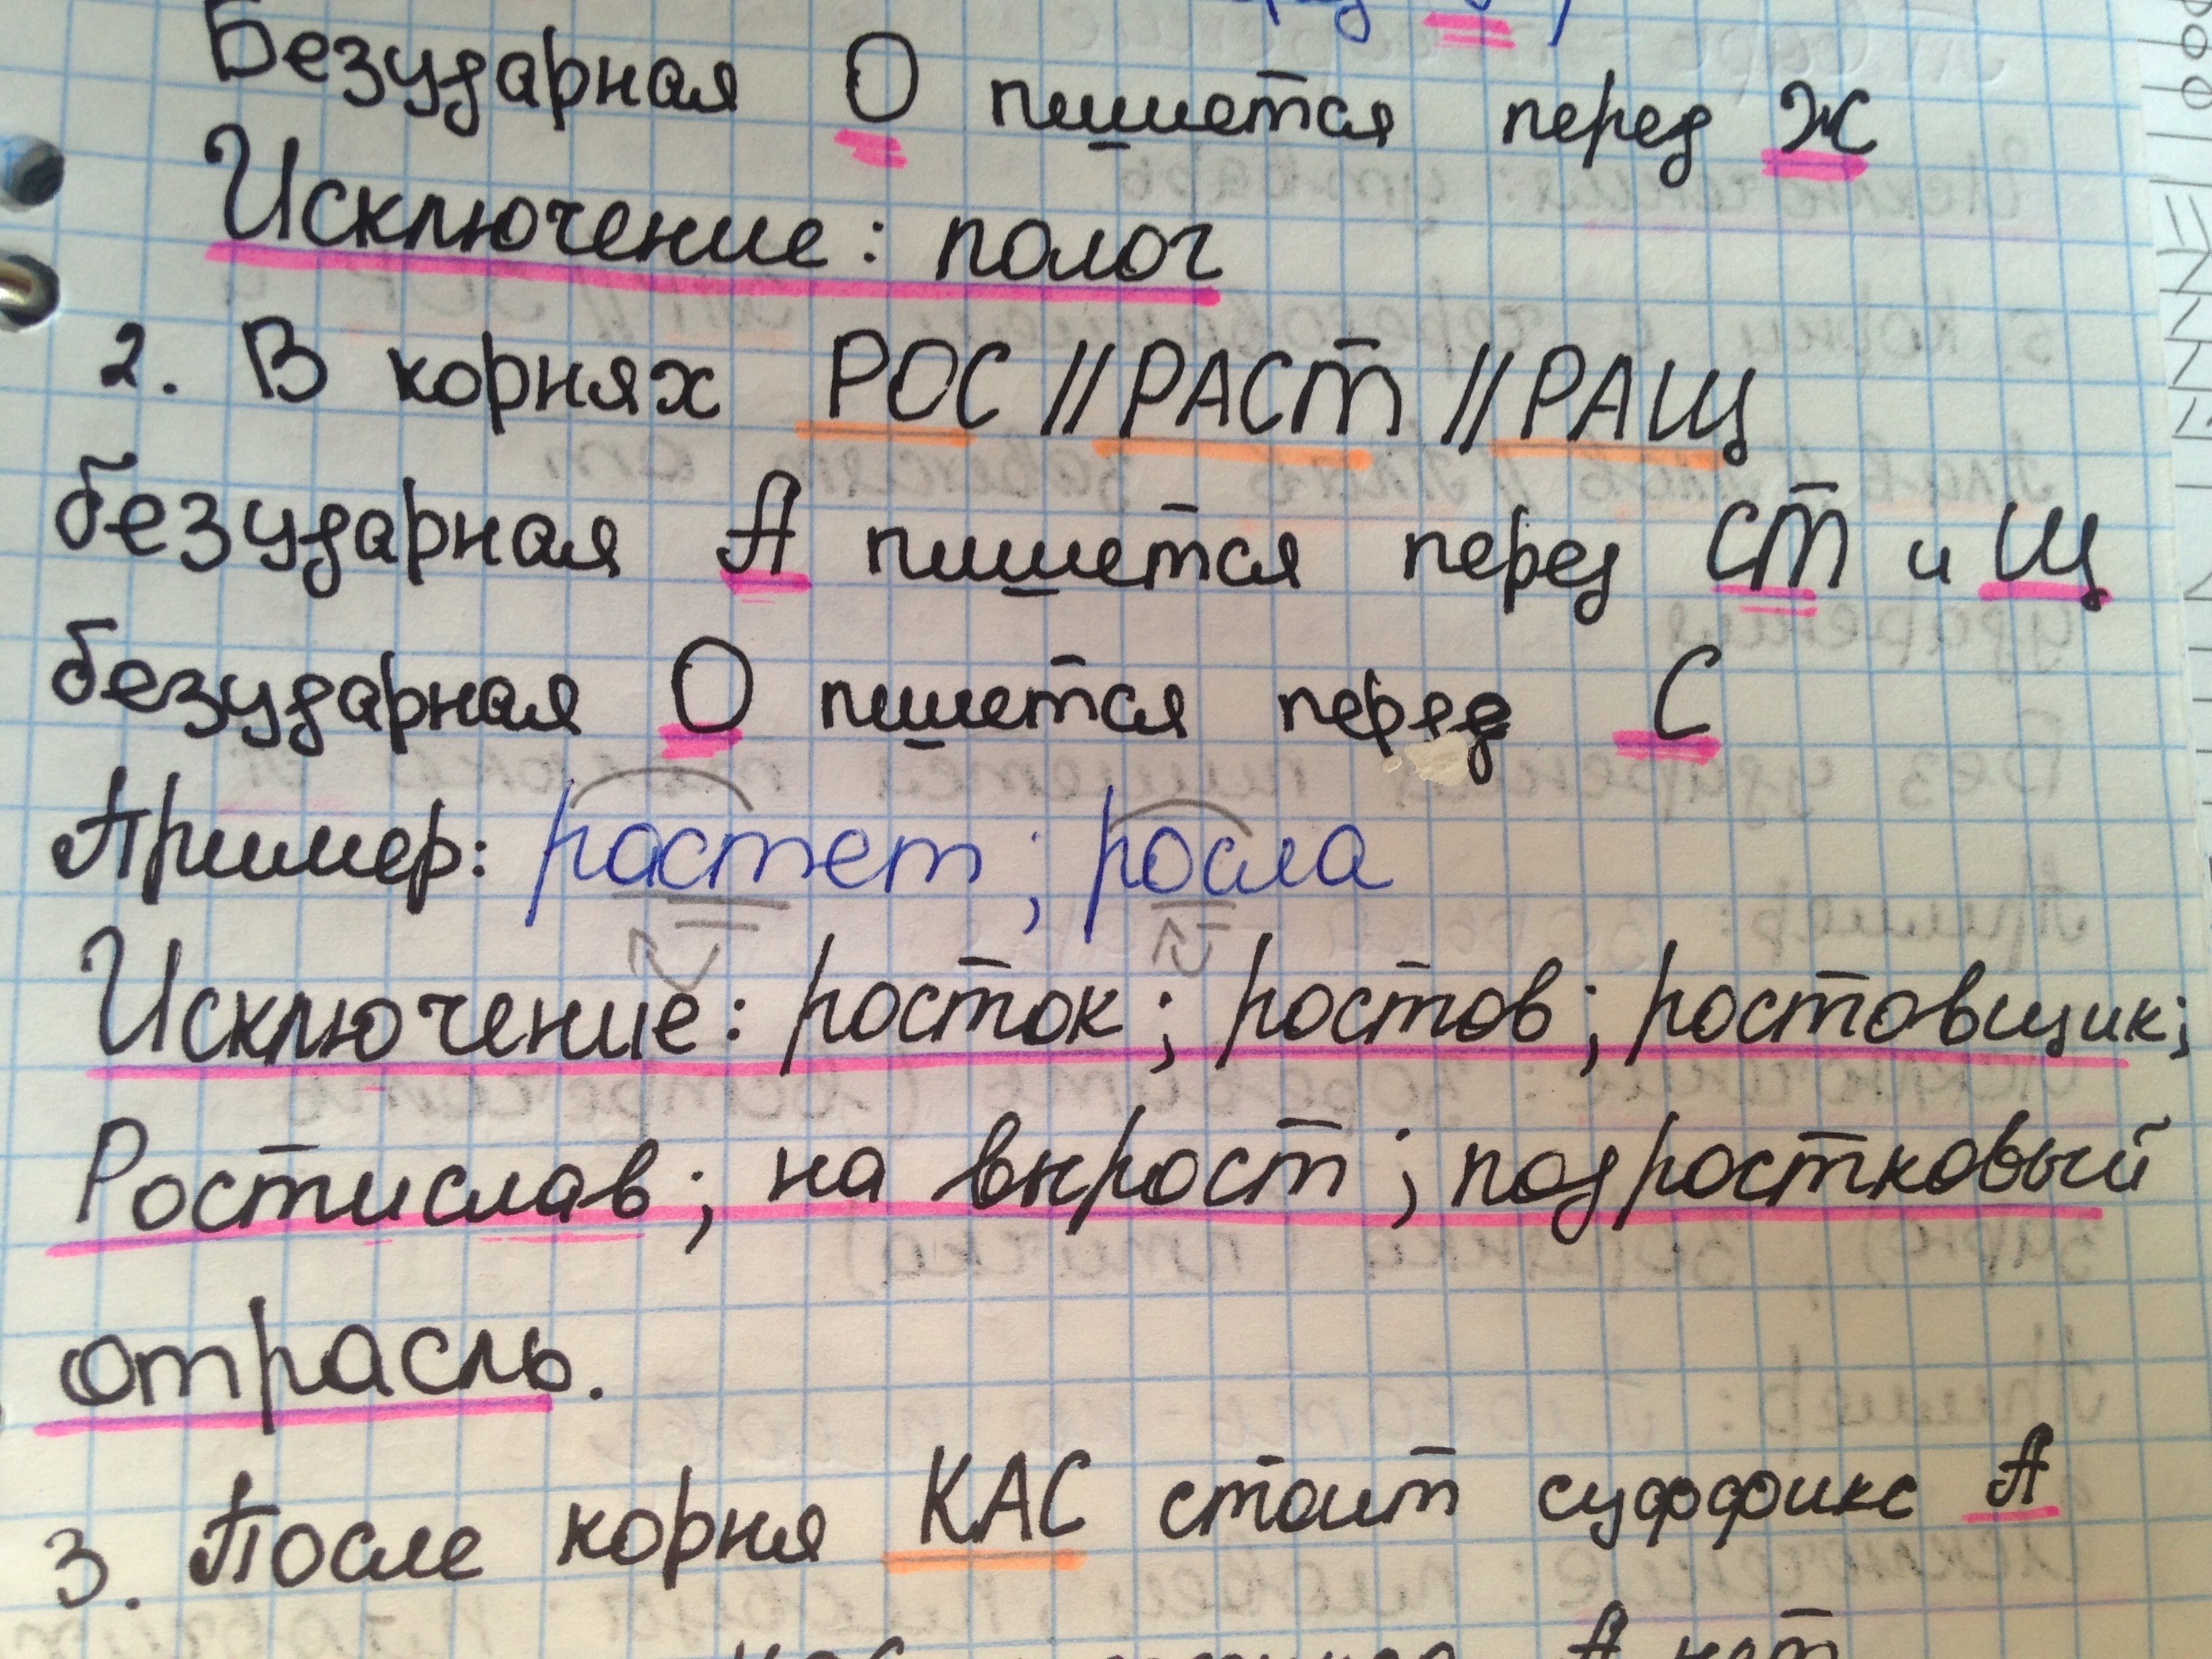 Безударная О пишется перед Ж
Исключение: полог
2. В корнях РОС // РАСТ // РАЩ
безударная А пишется перед СТ и Щ
безударная О пишется перед С
Пример: растет; росла
Исключение: росток; ростов; ростовщик;
Ростислав; на вырост; подростковый
отрасль.
3. После корня КАС стоит суффикс А
А нет